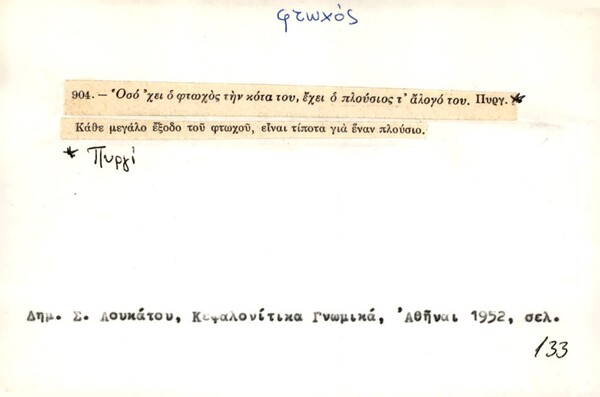 φτωχός
904. — Ὅσό ’χει ὁ φτωχὸς τὴν κότα του, ἔχει ὁ πλούσιος τ’ ἄλογό του. Πυργ. *
Κάθε μεγάλο ἔξοδο τοῦ φτωχοῦ, εἶναι τίποτα γιὰ ἕναν πλούσιο.
* Πυργί
Δημ. Σ. Λουκάτου, Κεφαλονίτικα Γνωμικά, Ἀθῆναι 1952, σελ.
133